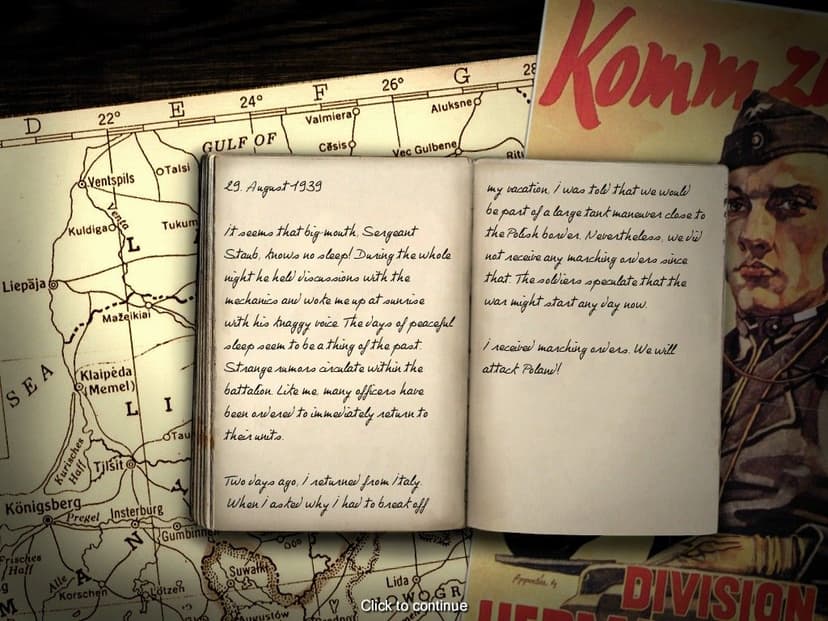 Komm z
D
22°
E
24°
F
26°
G
28
GULF OF
Valmiera
Aluksne
Cēsis
Vec Gulbene
Talsi
Ventspils
Venta
Kuldiga
Tukum
L
Liepāja
Mažeikiai
SEA
Klaipėda
(Memel)
L I
Kurisches
Haff
Tau
Tilsit
Königsberg
Pregel
Insterburg
Gumbinn
Frisches
Haff
Alle
Korschen
Lötzen
Suwałki
Augustów
Lida
NOWOGR
M A N
29. August 1939
It seems that big-mouth, Sergeant
Staub, knows no sleep! During the whole
night he held discussions with the
mechanics and woke me up at sunrise
with his knaggy voice. The days of peaceful
sleep seem to be a thing of the past.
Strange rumors circulate within the
battalion. Like me, many officers have
been ordered to immediately return to
their units.
Two days ago, I returned from Italy.
When I asked why I had to break off
my vacation, I was told that we would
be part of a large tank maneuver close to
the Polish border. Nevertheless, we did
not receive any marching orders since
that. The soldiers speculate that the
war might start any day now.
I received marching orders. We will
attack Poland!
DIVISION
HERMA
Click to continue